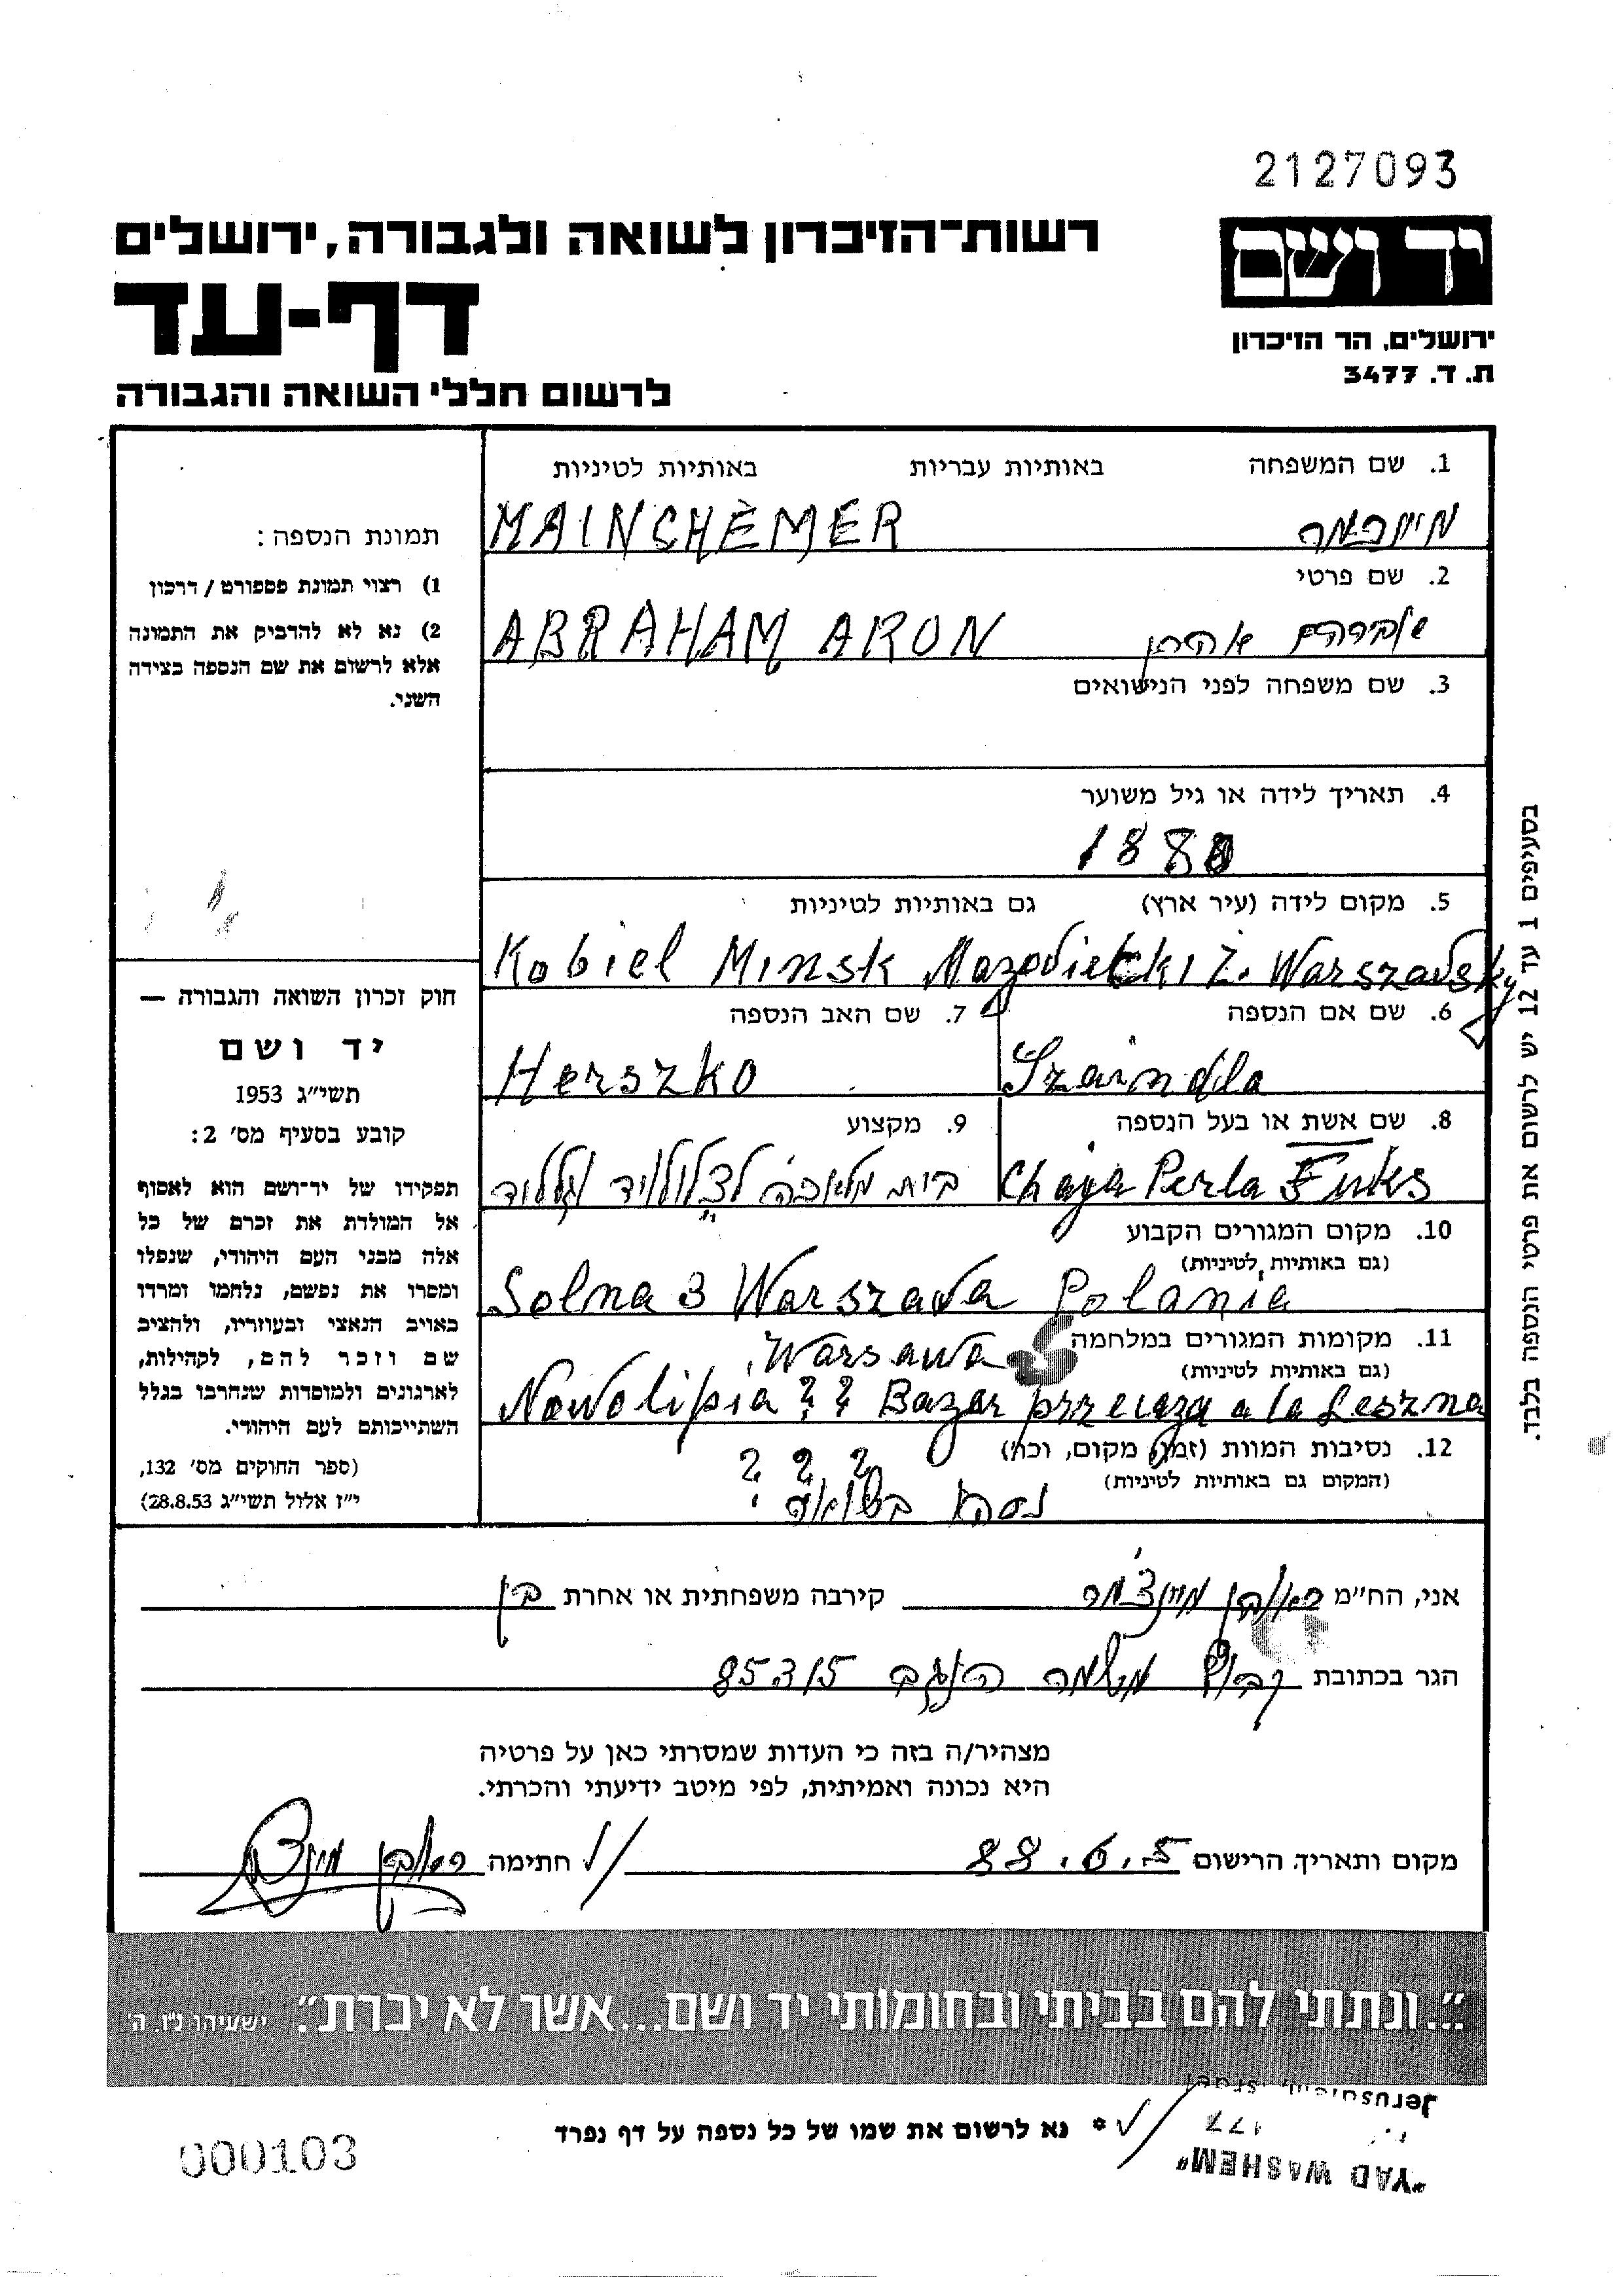 2127093
יד ושם
רשות־הזיכרון לשואה ולגבורה, ירושלים
דף-עד
ירושלים, הר הזיכרון
ת. ד. 3477
לרשום חללי השואה והגבורה
1. שם המשפחה באותיות עבריות באותיות לטיניות
MAINCHEMER
2. שם פרטי
אברהם אהרן ABRAHAM ARON
3. שם משפחה לפני הנישואים
4. תאריך לידה או גיל משוער
1880
5. מקום לידה (עיר ארץ) גם באותיות לטיניות
Kobiel Minsk Mazoviecki Z. Warszavsky
6. שם אם הנספה
Szaindla
7. שם האב הנספה
Herszko
8. שם אשת או בעל הנספה
Chaja Perla Fuks
9. מקצוע
בית מלאכה
10. מקום המגורים הקבוע
(גם באותיות לטיניות)
Solna 3 Warszawa Polania
11. מקומות המגורים במלחמה
(גם באותיות לטיניות)
Warsawa
Nowolipia ?? Bazar a la Leszna
12. נסיבות המוות (זמן, מקום, וכו׳)
(המקום גם באותיות לטיניות)
? ? ?
נספה בשואה
תמונת הנספה:
1) רצוי תמונת פספורט / דרכון
2) נא לא להדביק את התמונה
אלא לרשום את שם הנספה בצידה
השני.
חוק זכרון השואה והגבורה —
יד ושם
תשי״ג 1953
קובע בסעיף מס׳ 2:
תפקידו של יד־ושם הוא לאסוף
אל המולדת את זכרם של כל
אלה מבני העם היהודי, שנפלו
ומסרו את נפשם, נלחמו ומרדו
באויב הנאצי ובעוזריו, ולהציב
שם וזכר להם, לקהילות,
לארגונים ולמוסדות שנחרבו בגלל
השתייכותם לעם היהודי.
(ספר החוקים מס׳ 132,
י״ז אלול תשי״ג 28.8.53)
בסעיפים 1 עד 12 יש לרשום את פרטי הנספה בלבד.
אני, הח״מ ראובן מיינצ׳מר קירבה משפחתית או אחרת בן
הגר בכתובת קבוץ משמר הנגב 85315
מצהיר/ה בזה כי העדות שמסרתי כאן על פרטיה
היא נכונה ואמיתית, לפי מיטב ידיעתי והכרתי.
מקום ותאריך הרישום 5.6.88 חתימה ראובן
״...ונתתי להם בביתי ובחומותי יד ושם...אשר לא יכרת״. ישעיהו נ״ו, ה׳
* נא לרשום את שמו של כל נספה על דף נפרד
000103
"YAD WASHEM"
177